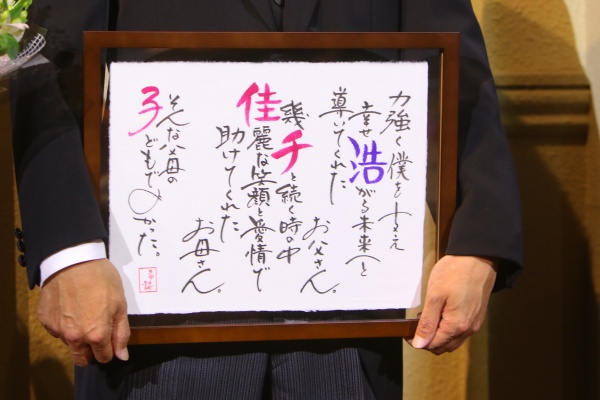 力強く僕を支え
幸せ浩がる未来へと
導いてくれた
お父さん。
幾千と続く時の中
佳麗な笑顔と愛情で
助けてくれた
お母さん。
そんな父母の
子どもでよかった。